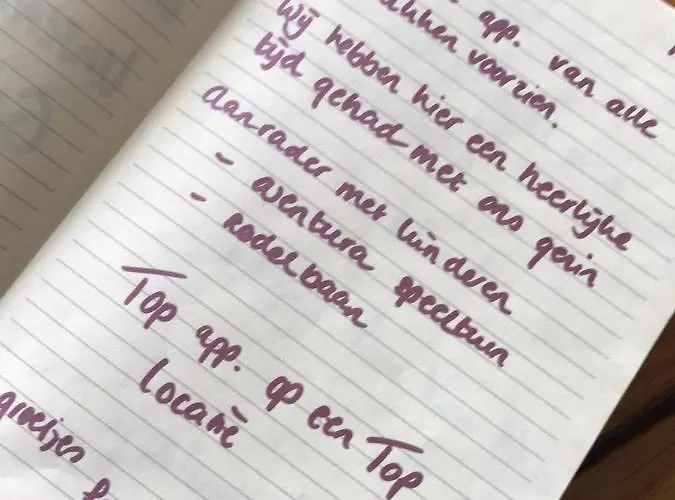 app. van alle
voorzien.
Wij hebben hier een heerlijke
tijd gehad met ons gezin
Aanrader met kinderen
- aventura speeltuin
- rodelbaan
Top app. op een Top
locatie
groetjes